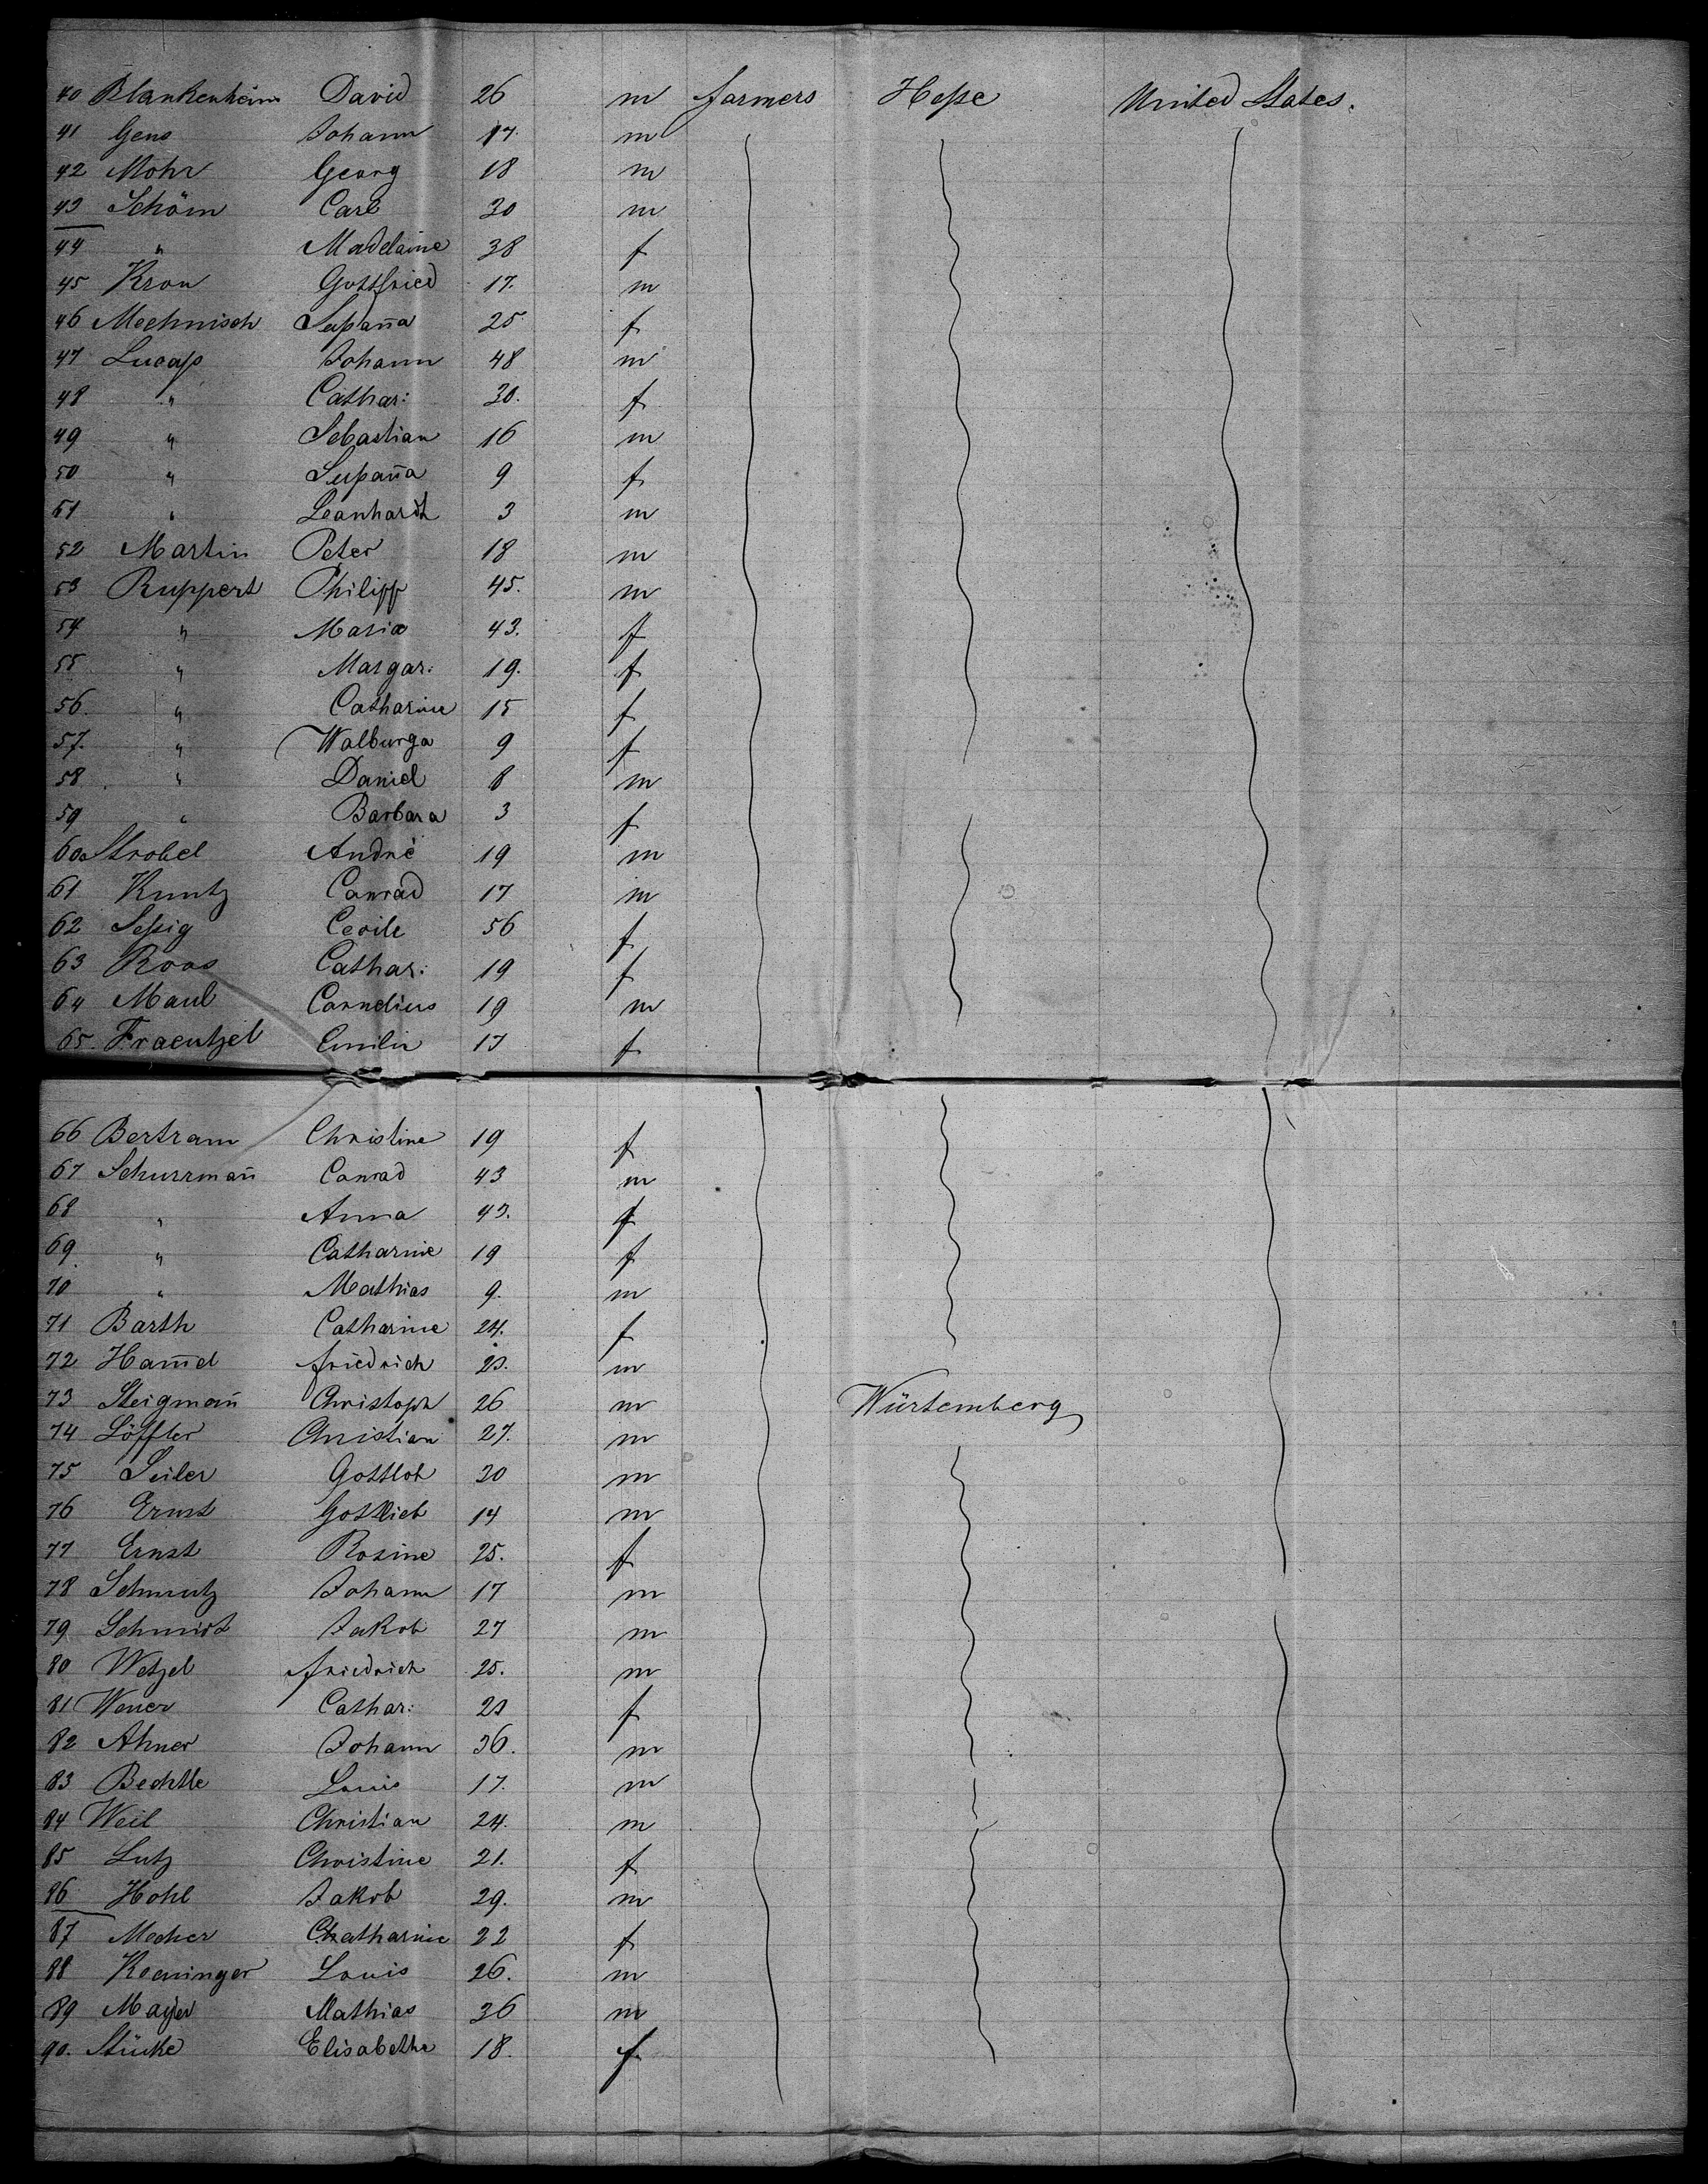 40 Blankenheim David 26 m farmers Heſse United States.
41 Gens Johann 17. m
42 Mohr Georg 18 m
43 Schöm Carl 30 m
44 " Madelaine 38 f
45 Kron Gottfried 17. m
46 Mechnisch Suſan̄a 25 f
47 Lucaſs Johann 48 m
48 " Cathar: 30. f
49 " Sebastian 16 m
50 " Suſan̄a 9 f
51 " Leonhardt 3 m
52 Martin Peter 18 m
53 Ruppert Philipp 45. m
54 " Maria 43. f
55 " Margar: 19. f
56. " Catharine 15 f
57. " Walburga 9 f
58 " Daniel 8 m
59 " Barbara 3 f
60 Strobel André 19 m
61 Kuntz Conrad 17 m
62 Seſsig Cecile 56 f
63 Roos Cathar: 19 f
64 Maul Cornelius 19 m
65. Fraentzel Emilie 17 f
66 Bertram Christine 19 f
67 Schurrman̄ Conrad 43 m
68 " Anna 43. f
69. " Catharine 19 f
70 " Mathias 9. m
71 Barth Catharine 24. f
72 Ham̄el Friedrich 23. m
73 Steigman̄ Christoph 26 m Würtemberg
74 Löffler Christian 27. m
75 Seiler Gottlob 20 m
76 Ernst Gottlieb 14 m
77 Ernst Rosine 25. f
78 Schmutz Johann 17 m
79 Schmidt Jakob 27 m
80 Wetzel Friedrich 25. m
81 Cathar: 23 f
82 Ahner Johann 36. m
83 Bechtle Louis 17. m
84 Weil Christian 24. m
85 Lutz Christine 21. f
86 Hohl Jakob 29. m
87 Mecher Chatharine 22 f
88 Koeninger Louis 26. m
89 Mayer Mathias 36 m
90. Stücke Elisabetha 18. f